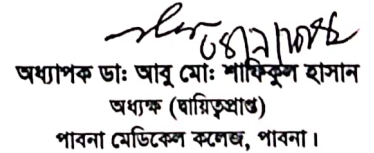 অধ্যাপক ডাঃ আবু মোঃ শাফিকুল হাসান
অধ্যক্ষ (দায়িত্বপ্রাপ্ত)
পাবনা মেডিকেল কলেজ, পাবনা।